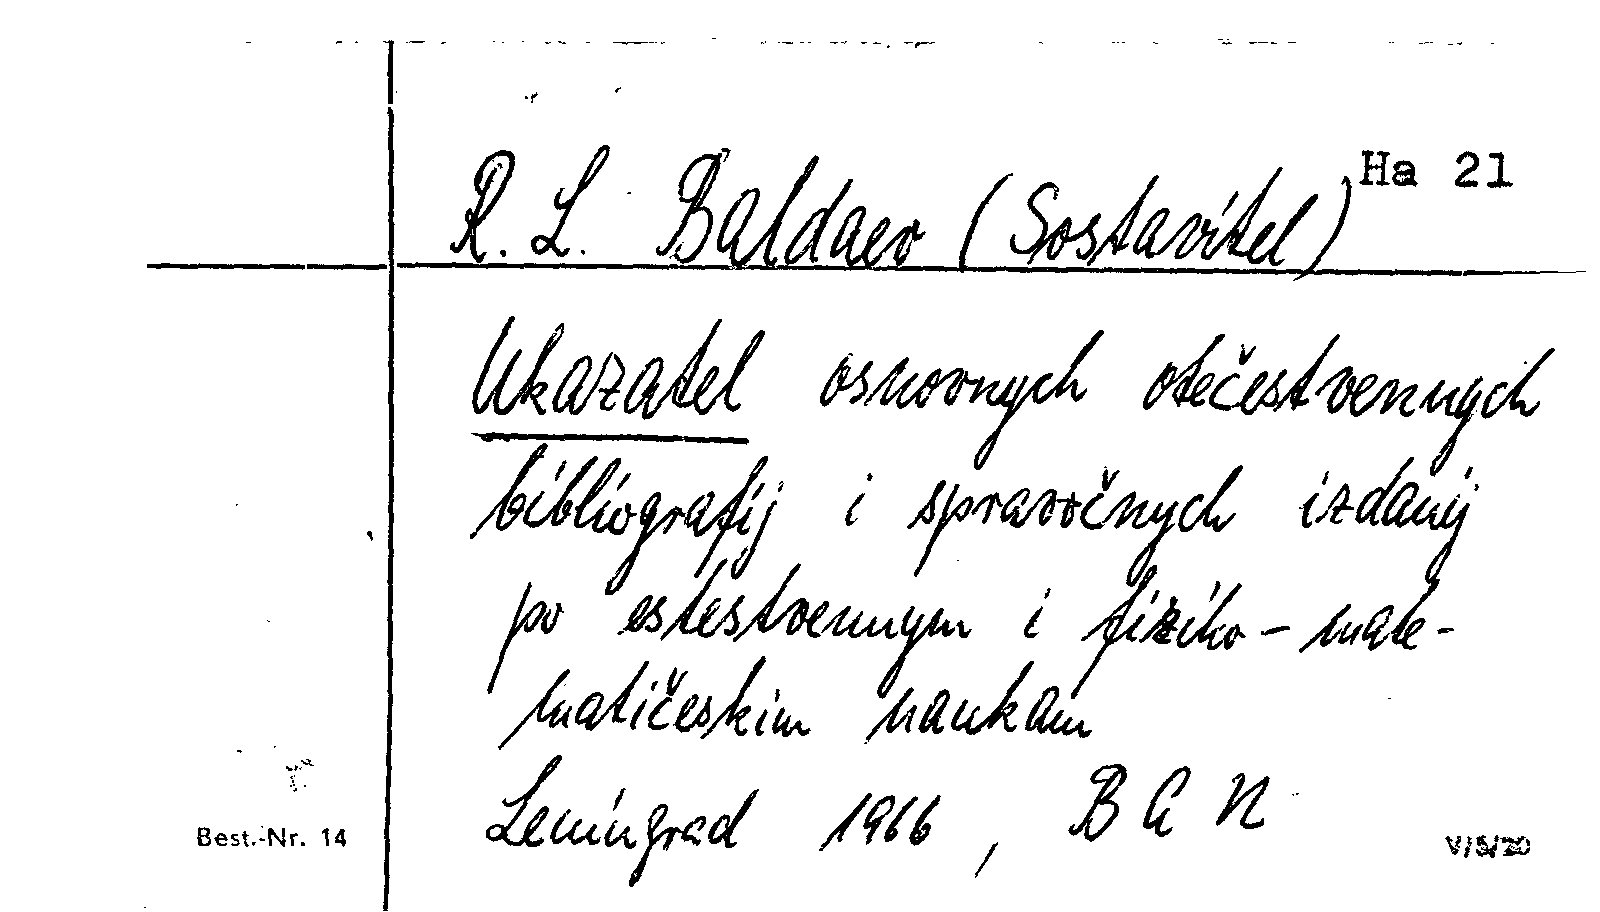 Ha 21
R. L. Baldaev (Sostavitel)
Ukazatel osnovnych otečestvennych
bibliografij i spravočnych izdanij
po estestvennym i fiziko-mate-
matičeskim naukam
Leningrad 1966, BAN
Best.-Nr. 14
V/5/20